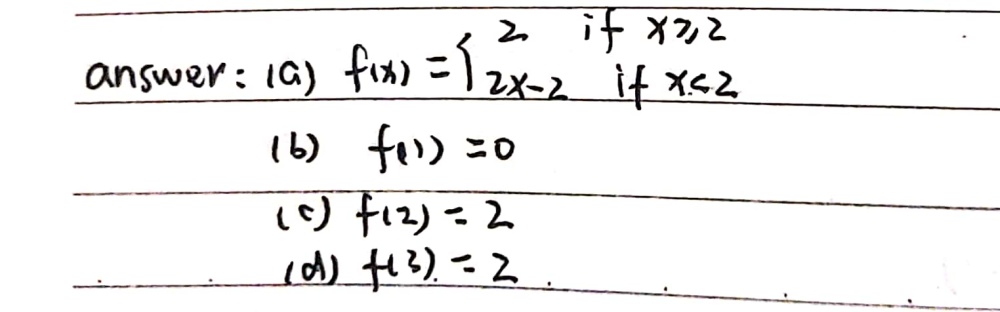 answer: (a) f(x) = { 2 if x⩾2
2x-2 if x<2
(b) f(1) = 0
(c) f(2) = 2
(d) f(3) = 2